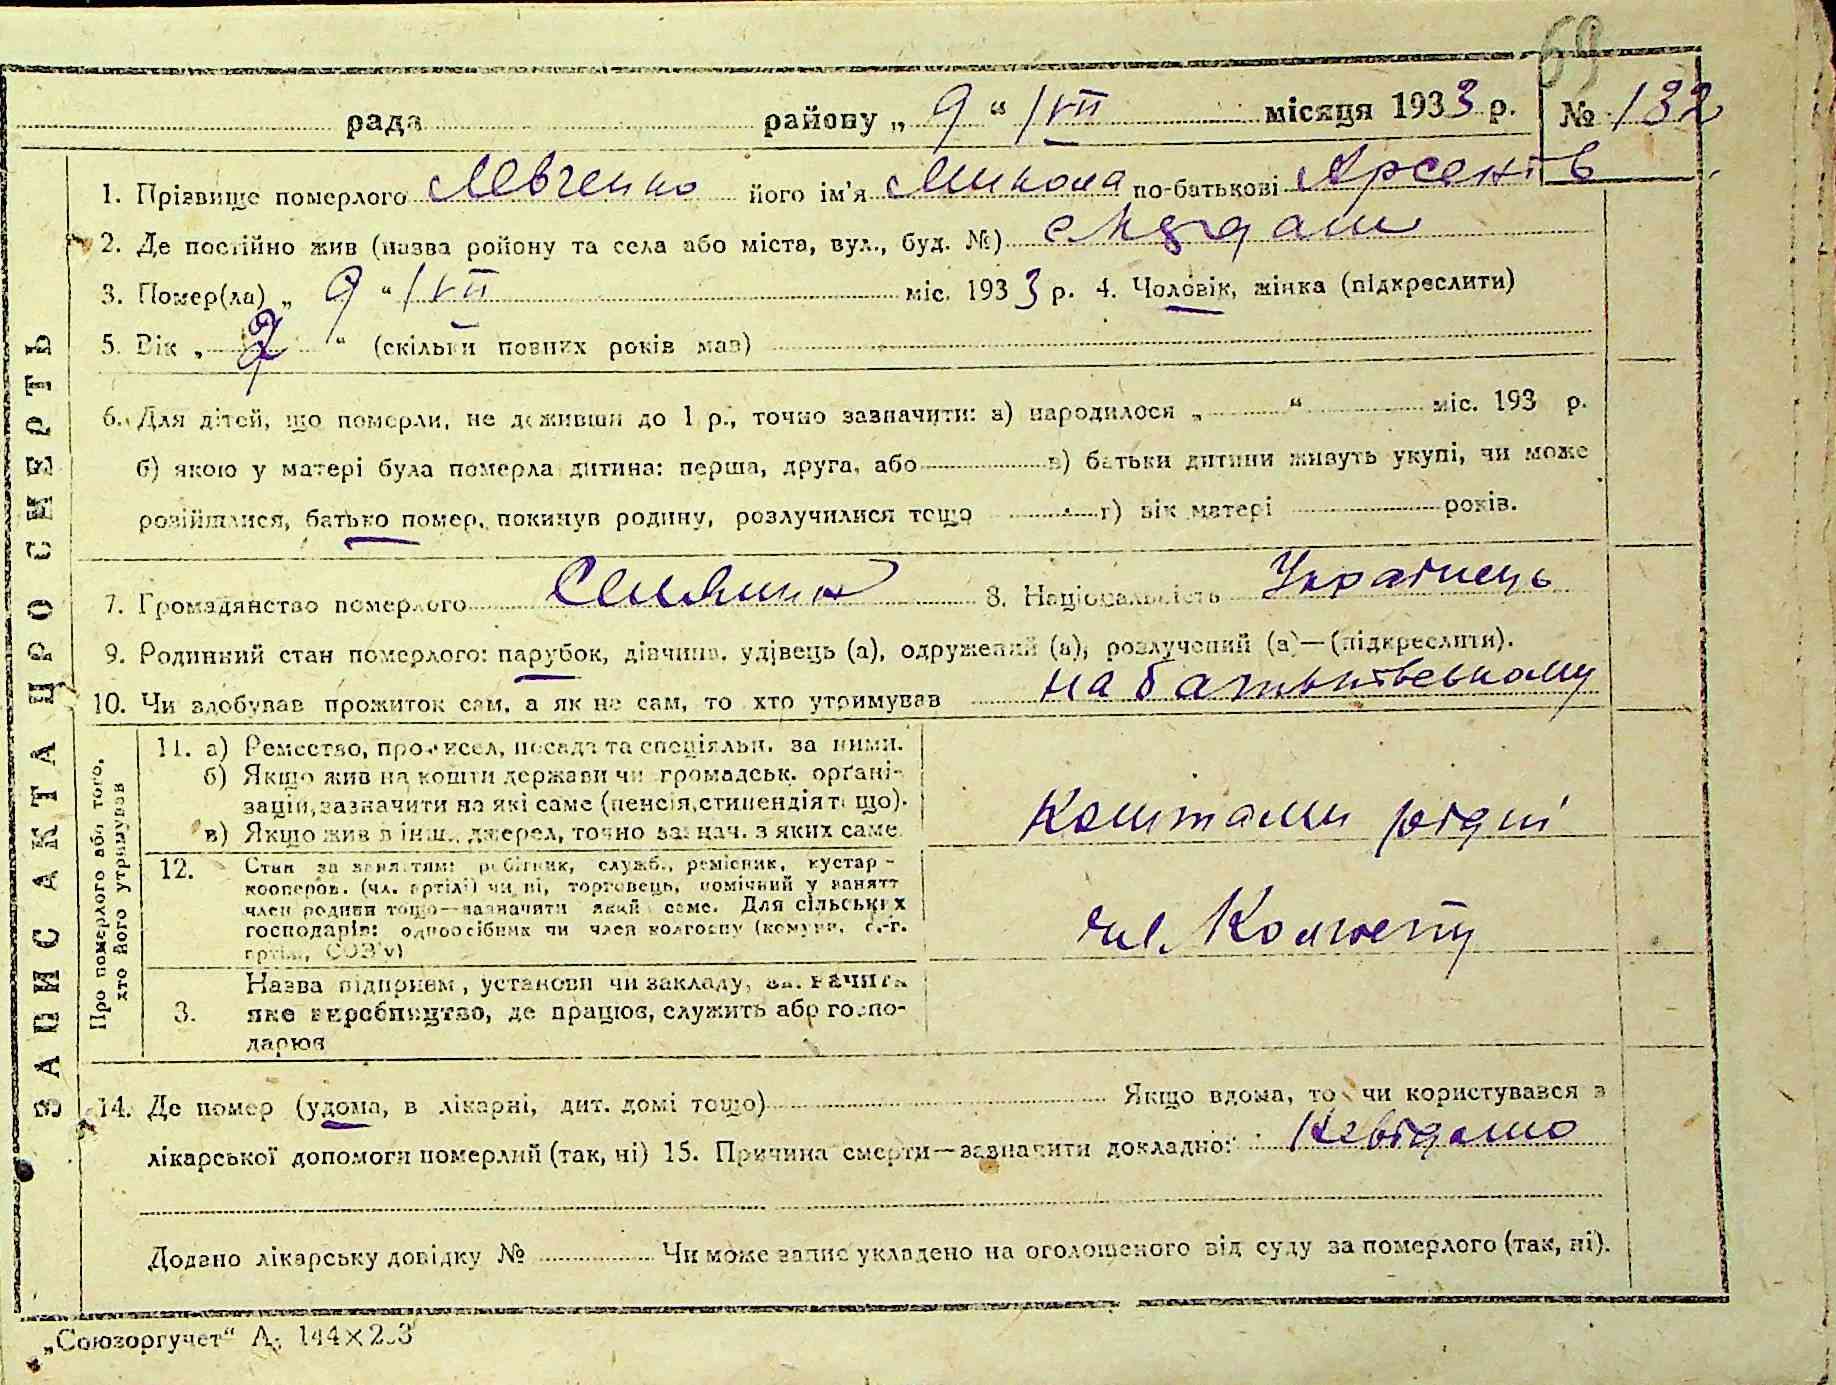 69
рада району „ 9 “ /VII місяця 1933 р. № 132
1. Прізвище померлого Левченко його ім'я Микола по-батькові Арсенів
2. Де постійно жив (назва району та села або міста, вул., буд. №)
3. Помер(ла) „ 9 “ /VII міс. 1933 р. 4. Чоловік, жінка (підкреслити)
5. Вік „ 2 “ (скільки повних років мав)
6. Для дітей, що померли, не доживши до 1 р., точно зазначити: а) народилося „ “ міс. 193 р.
б) якою у матері була померла дитина: перша, друга, або в) батьки дитини живуть укупі, чи може
розійшлися, батько помер, покинув родину, розлучилися тощо г) вік матері років.
7. Громадянство померлого Селянин 8. Національність Українець
9. Родинний стан померлого: парубок, дівчина, удівець (а), одружений (а), розлучений (а)—(підкреслити).
10. Чи здобував прожиток сам, а як не сам, то хто утримував на батьківському
ЗАПИС АКТА ПРО СМЕРТЬ
Про померлого або того, хто його утримував
11. а) Ремество, промисел, посада та спеціяльн. за ними.
б) Якщо жив на кошти держави чи громадськ. орґані-
зацій, зазначити на які саме (пенсія, стипендія тощо).
в) Якщо жив з інш. джерел, точно зазнач. з яких саме
Коштами рідні
12. Стан за заняттям: робітник, служб., ремісник, кустар-
кооперов. (чл. артілі) чи ні, торговець, помічний у занятт
член родини тощо—зазначити який саме. Для сільських
господарів: одноосібник чи член колгоспу (комуни, с.-г.
артілі, СОЗ'у)
чл. Колгоспу
3. Назва підприєм, установи чи закладу, зазначити
яке виробництво, де працює, служить або госпо-
дарює
14. Де помер (удома, в лікарні, дит. домі тощо) Якщо вдома, то чи користувався з
лікарської допомоги померлий (так, ні) 15. Причина смерти—зазначити докладно: Невідомо
Додано лікарську довідку № Чи може запис укладено на оголошеного від суду за померлого (так, ні).
„Союзоргучет“